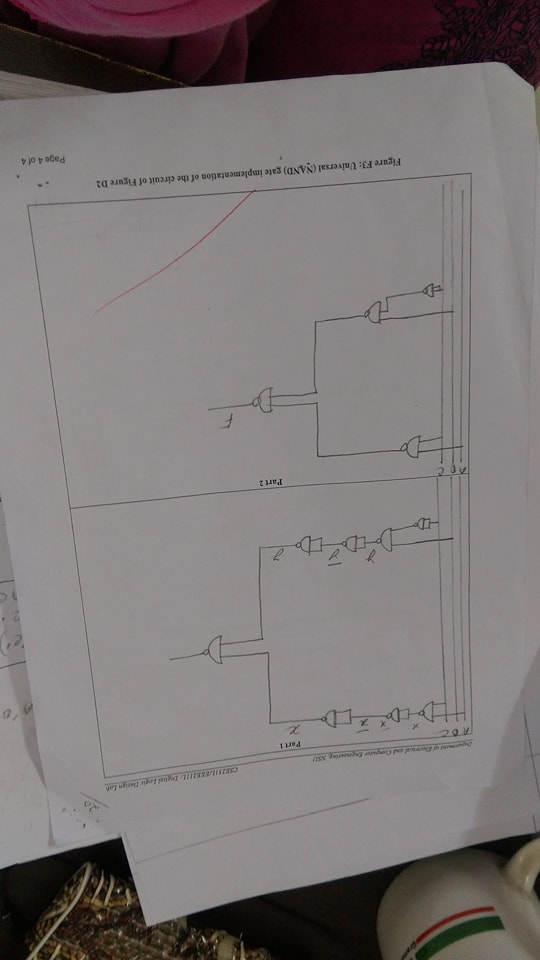 Department of Electrical and Computer Engineering, NSU
CSE231L/EEE211L: Digital Logic Design Lab
Part 1
A B C
x x x̄ x
y ȳ y
Part 2
A B C
F
Figure F3: Universal (NAND) gate implementation of the circuit of Figure D2
Page 4 of 4